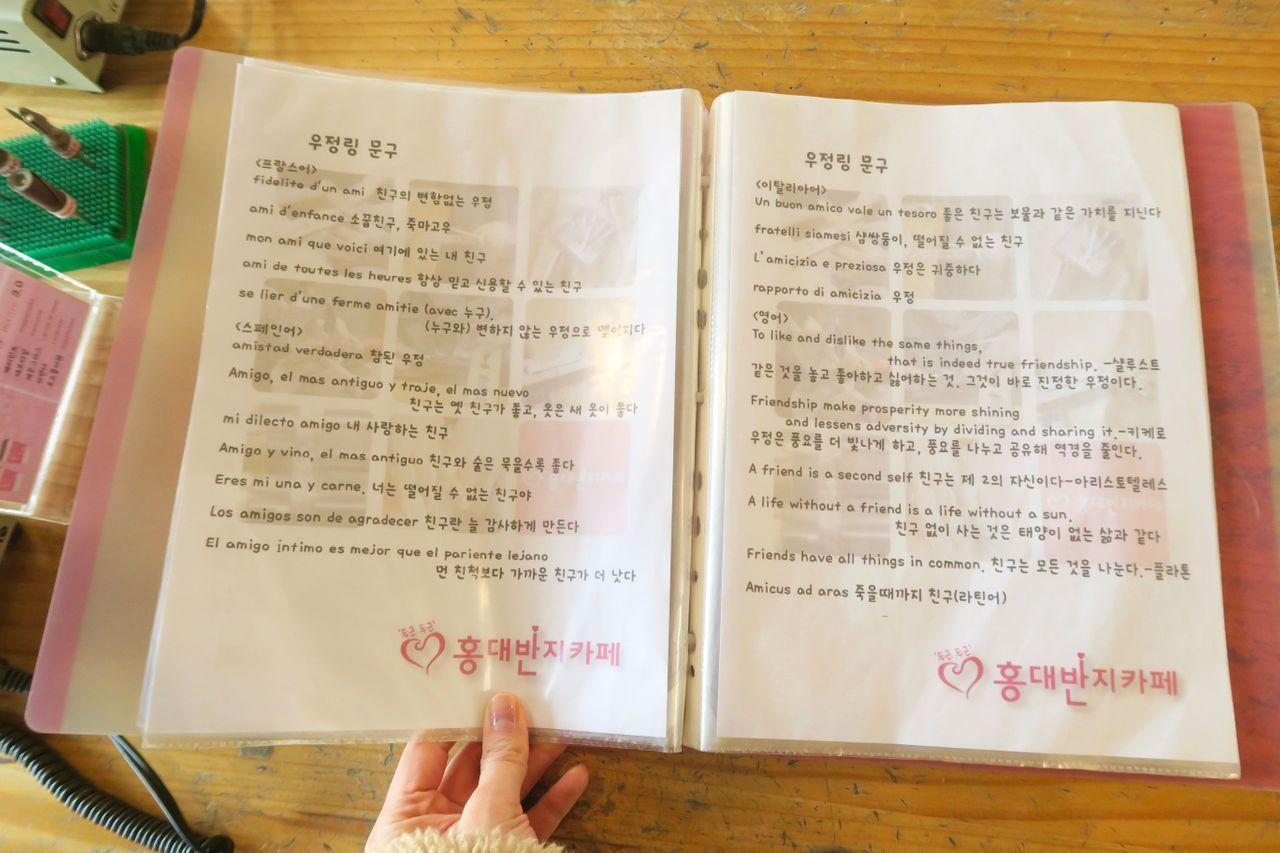 우정링 문구
<프랑스어>
fidelite d'un ami 친구의 변함없는 우정
ami d'enfance 소꿉친구, 죽마고우
mon ami que voici 여기에 있는 내 친구
ami de toutes les heures 항상 믿고 신용할 수 있는 친구
se lier d'une ferme amitie (avec 누구).
(누구와) 변하지 않는 우정으로 맺어지다
<스페인어>
amistad verdadera 참된 우정
Amigo, el mas antiguo y traje, el mas nuevo
친구는 옛 친구가 좋고, 옷은 새 옷이 좋다
mi dilecto amigo 내 사랑하는 친구
Amigo y vino, el mas antiguo 친구와 술은 묵을수록 좋다
Eres mi una y carne. 너는 떨어질 수 없는 친구야
Los amigos son de agradecer 친구란 늘 감사하게 만든다
El amigo intimo es mejor que el pariente lejano
먼 친척보다 가까운 친구가 더 낫다
'두근 두근'
홍대반지카페
우정링 문구
<이탈리아어>
Un buon amico vale un tesoro 좋은 친구는 보물과 같은 가치를 지닌다
fratelli siamesi 샴쌍둥이, 떨어질 수 없는 친구
L'amicizia e preziosa 우정은 귀중하다
rapporto di amicizia 우정
<영어>
To like and dislike the same things,
that is indeed true friendship. -샬루스트
같은 것을 놓고 좋아하고 싫어하는 것. 그것이 바로 진정한 우정이다.
Friendship make prosperity more shining
and lessens adversity by dividing and sharing it.-키케로
우정은 풍요를 더 빛나게 하고, 풍요를 나누고 공유해 역경을 줄인다.
A friend is a second self 친구는 제 2의 자신이다-아리스토텔레스
A life without a friend is a life without a sun.
친구 없이 사는 것은 태양이 없는 삶과 같다
Friends have all things in common. 친구는 모든 것을 나눈다.-플라톤
Amicus ad aras 죽을때까지 친구(라틴어)
'두근 두근'
홍대반지카페